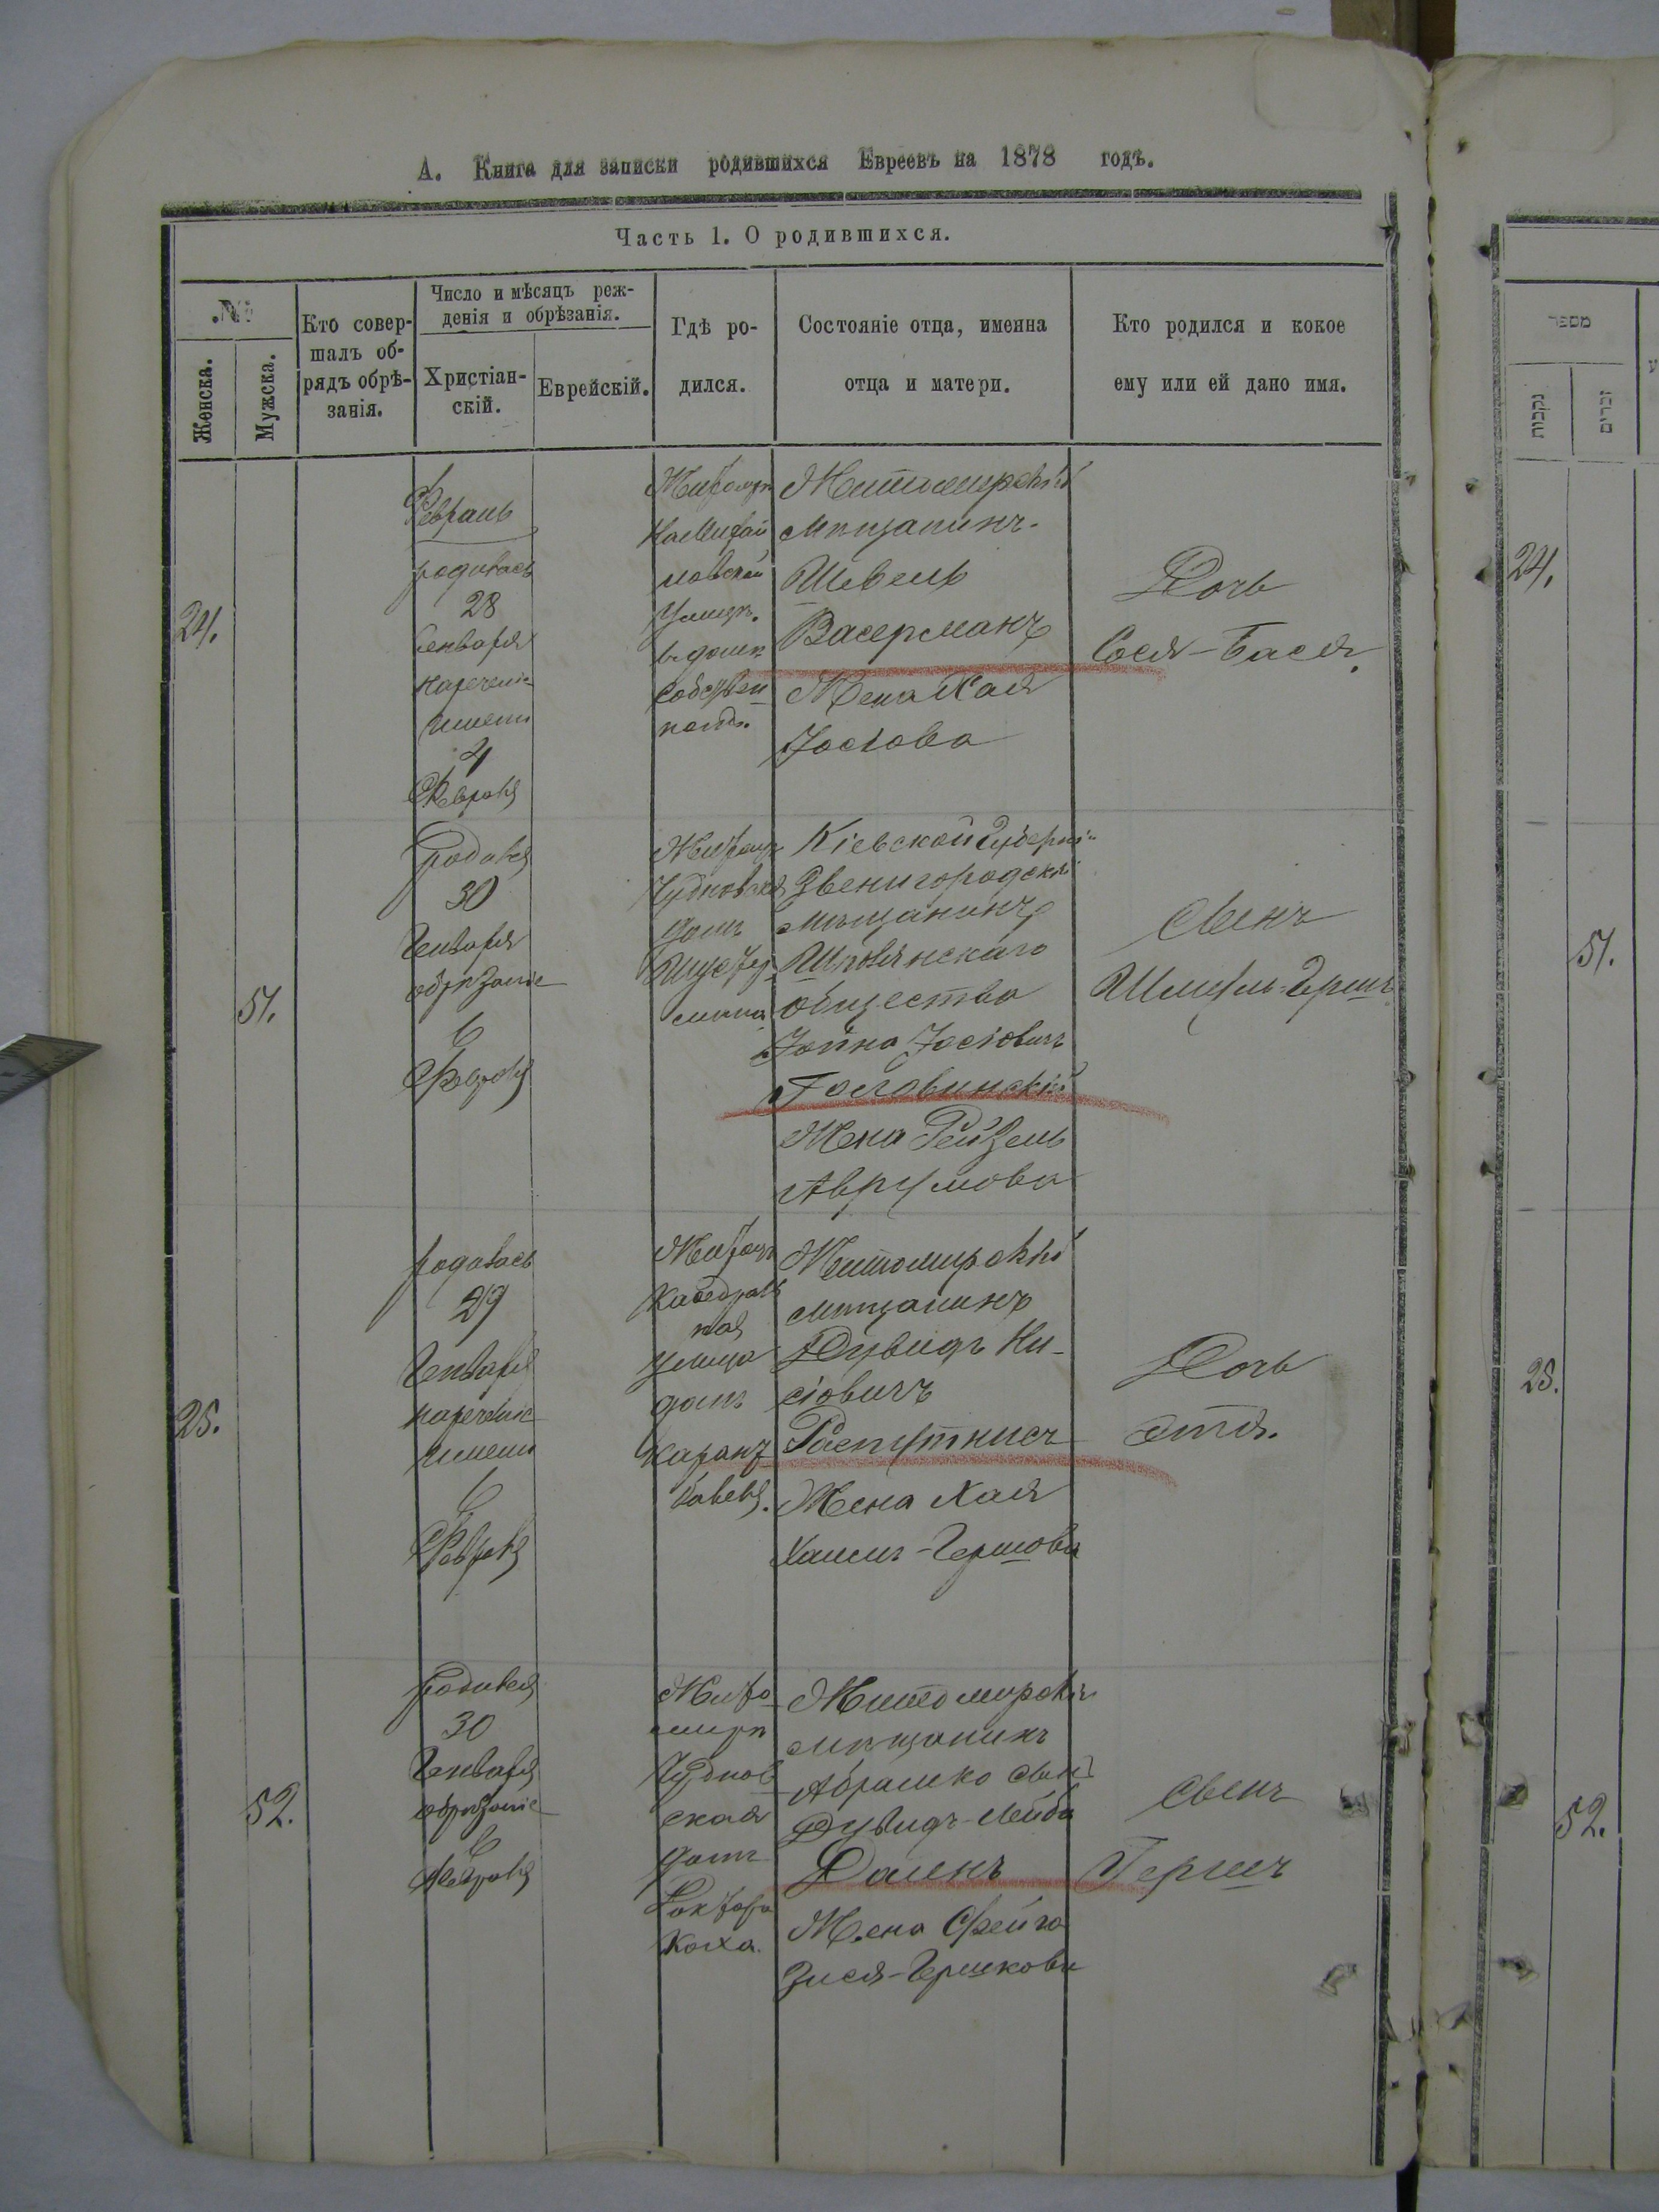 А. Книга для записки родившихся Евреевъ на 1878 годъ.
Часть 1. О родившихся.
№
Женска.
Мужска.
Кто совер-
шалъ об-
рядъ обрѣ-
занія.
Число и мѣсяцъ рож-
денія и обрѣзанія.
Христіан-
скій.
Еврейскій.
Гдѣ ро-
дился.
Состояніе отца, именна
отца и матери.
Кто родился и кокое
ему или ей дано имя.
24.
Февраль
родилась
28
Генваря
нареченіе
имени
4
Февраля
Житомиръ
улицѣ
в домѣ
собствен
Житомирскій
мѣщанинъ
Шевель
Васерманъ
Жена Хая
Іосіова
Дочь
Сося-Бася.
51.
родился
30
Генваря
обрѣзаніе
6
Февраля
Житомиръ
Чудновская
домъ
Кіевской Губерніи
Звенигородскій
мѣщанинъ
Шполянскаго
общества
Іойна Іосіовичъ
Головинскій
Жена Рейзель
Аврумова
Сынъ
Шмуль-Гершъ
25.
родилась
29
Генваря
нареченіе
имени
6
Февраля
Житомиръ
Кафедраль
ная
улица
домъ
Житомирскій
мѣщанинъ
Дувидъ Ни-
сіовичъ
Распутнисъ
Жена Хая
Хаимъ-Гершова
Дочь
Этя.
52.
родился
30
Генваря
обрѣзаніе
6
Февраля
Жито
миръ
Чуднов
ская
домъ
Доктора
Коха.
Житомирскій
мѣщанинъ
Абрамко сынъ
Дувидъ-Лейба
Даенъ
Жена Фейга
Зися-Гершкова
Сынъ
Гершъ
מספר
נקבות
זכרים
24.
51.
25.
52.